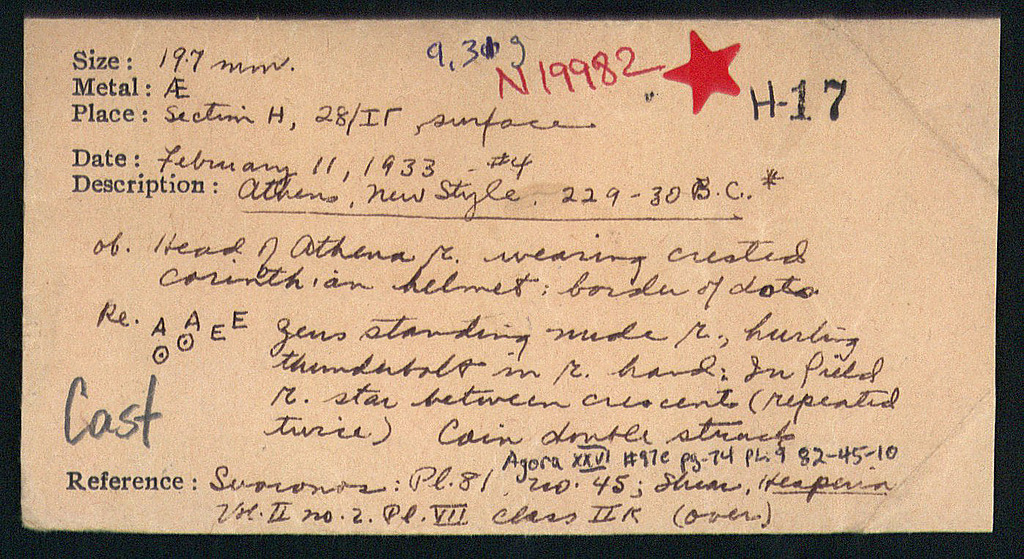 9,31 g
N19982
H-17
Size: 19.7 mm.
Metal: Æ
Place: Section H, 28/ΙΓ, surface
Date: February 11, 1933 - #4
Description: Athens, New Style. 229-30 B.C.*
ob. Head of Athena r. wearing crested
corinthian helmet; border of dots
Re. A A E E Zeus standing nude r., hurling
⊙ ⊙ thunderbolt in r. hand; In field
r. star between crescents (repeated
twice) Coin double struck
Cast
Agora XXVI #97e pg-74 PL.9 82-45-10
Reference: Svoronos: Pl. 81, no. 45; Shear, Hesperia
Vol. II no. 2. Pl. VII Class II K (over)